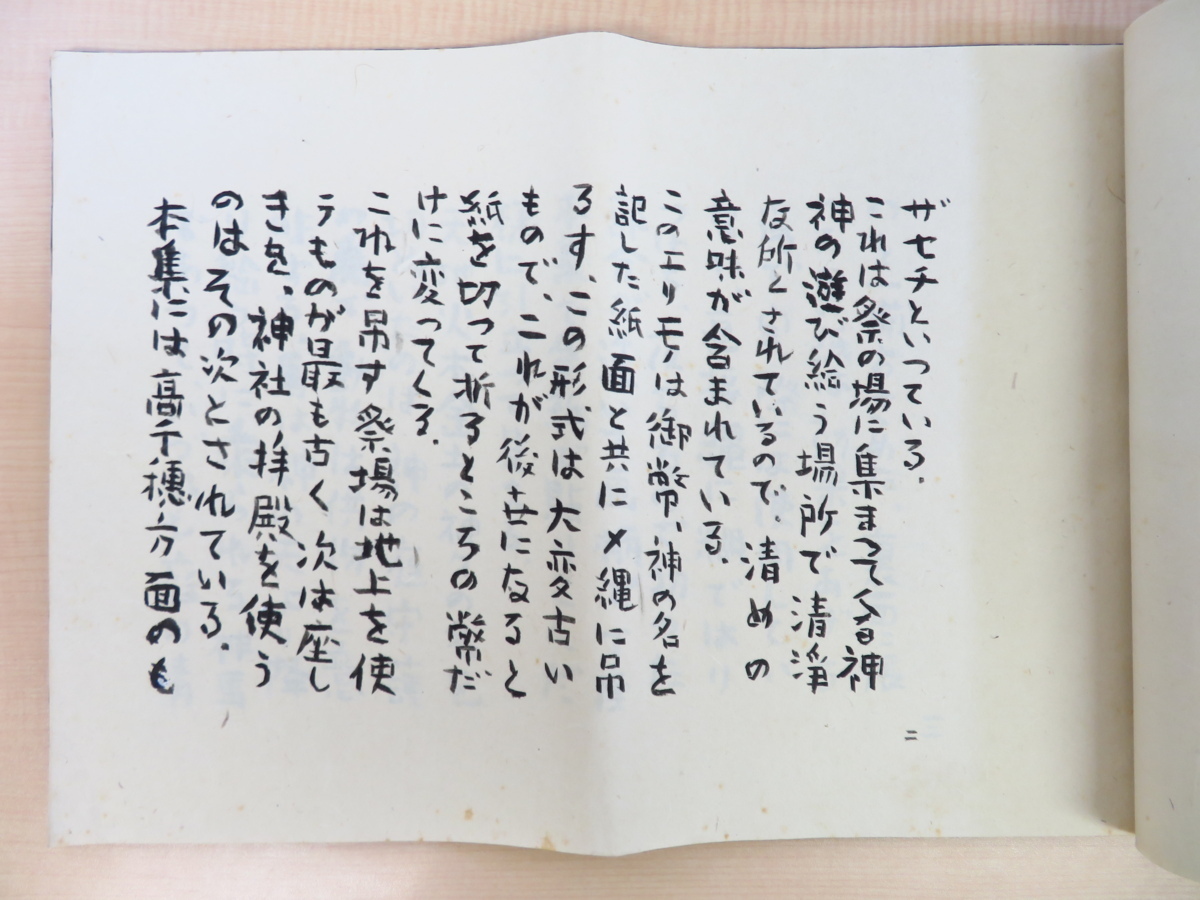 ザセチといっている.
これは祭の場に集まってくる神
神の遊び給う場所で清浄
な所とされているので、清めの
意味が含まれている.
このエリモノは御幣、神の名を
記した紙面と共に〆縄に吊
るす、この形式は大変古い
もので、これが後世になると
紙を切って折るところの幣だ
けに変ってくる.
これを吊す祭場は地上を使
うものが最も古く次は座し
きを、神社の拝殿を使う
のはその次とされている.
本集には高千穂方面のも
二